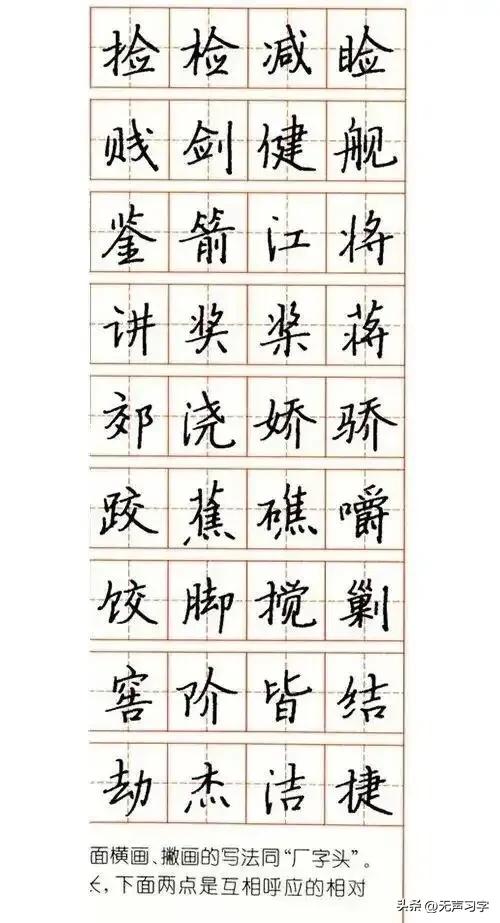 捡检减睑
贱剑健舰
鉴箭江将
讲奖桨蒋
郊浇娇骄
跤蕉礁嚼
饺脚搅剿
窖阶皆结
劫杰洁捷
面横画、撇画的写法同“厂字头”。
长,下面两点是互相呼应的相对
头条@无声习字